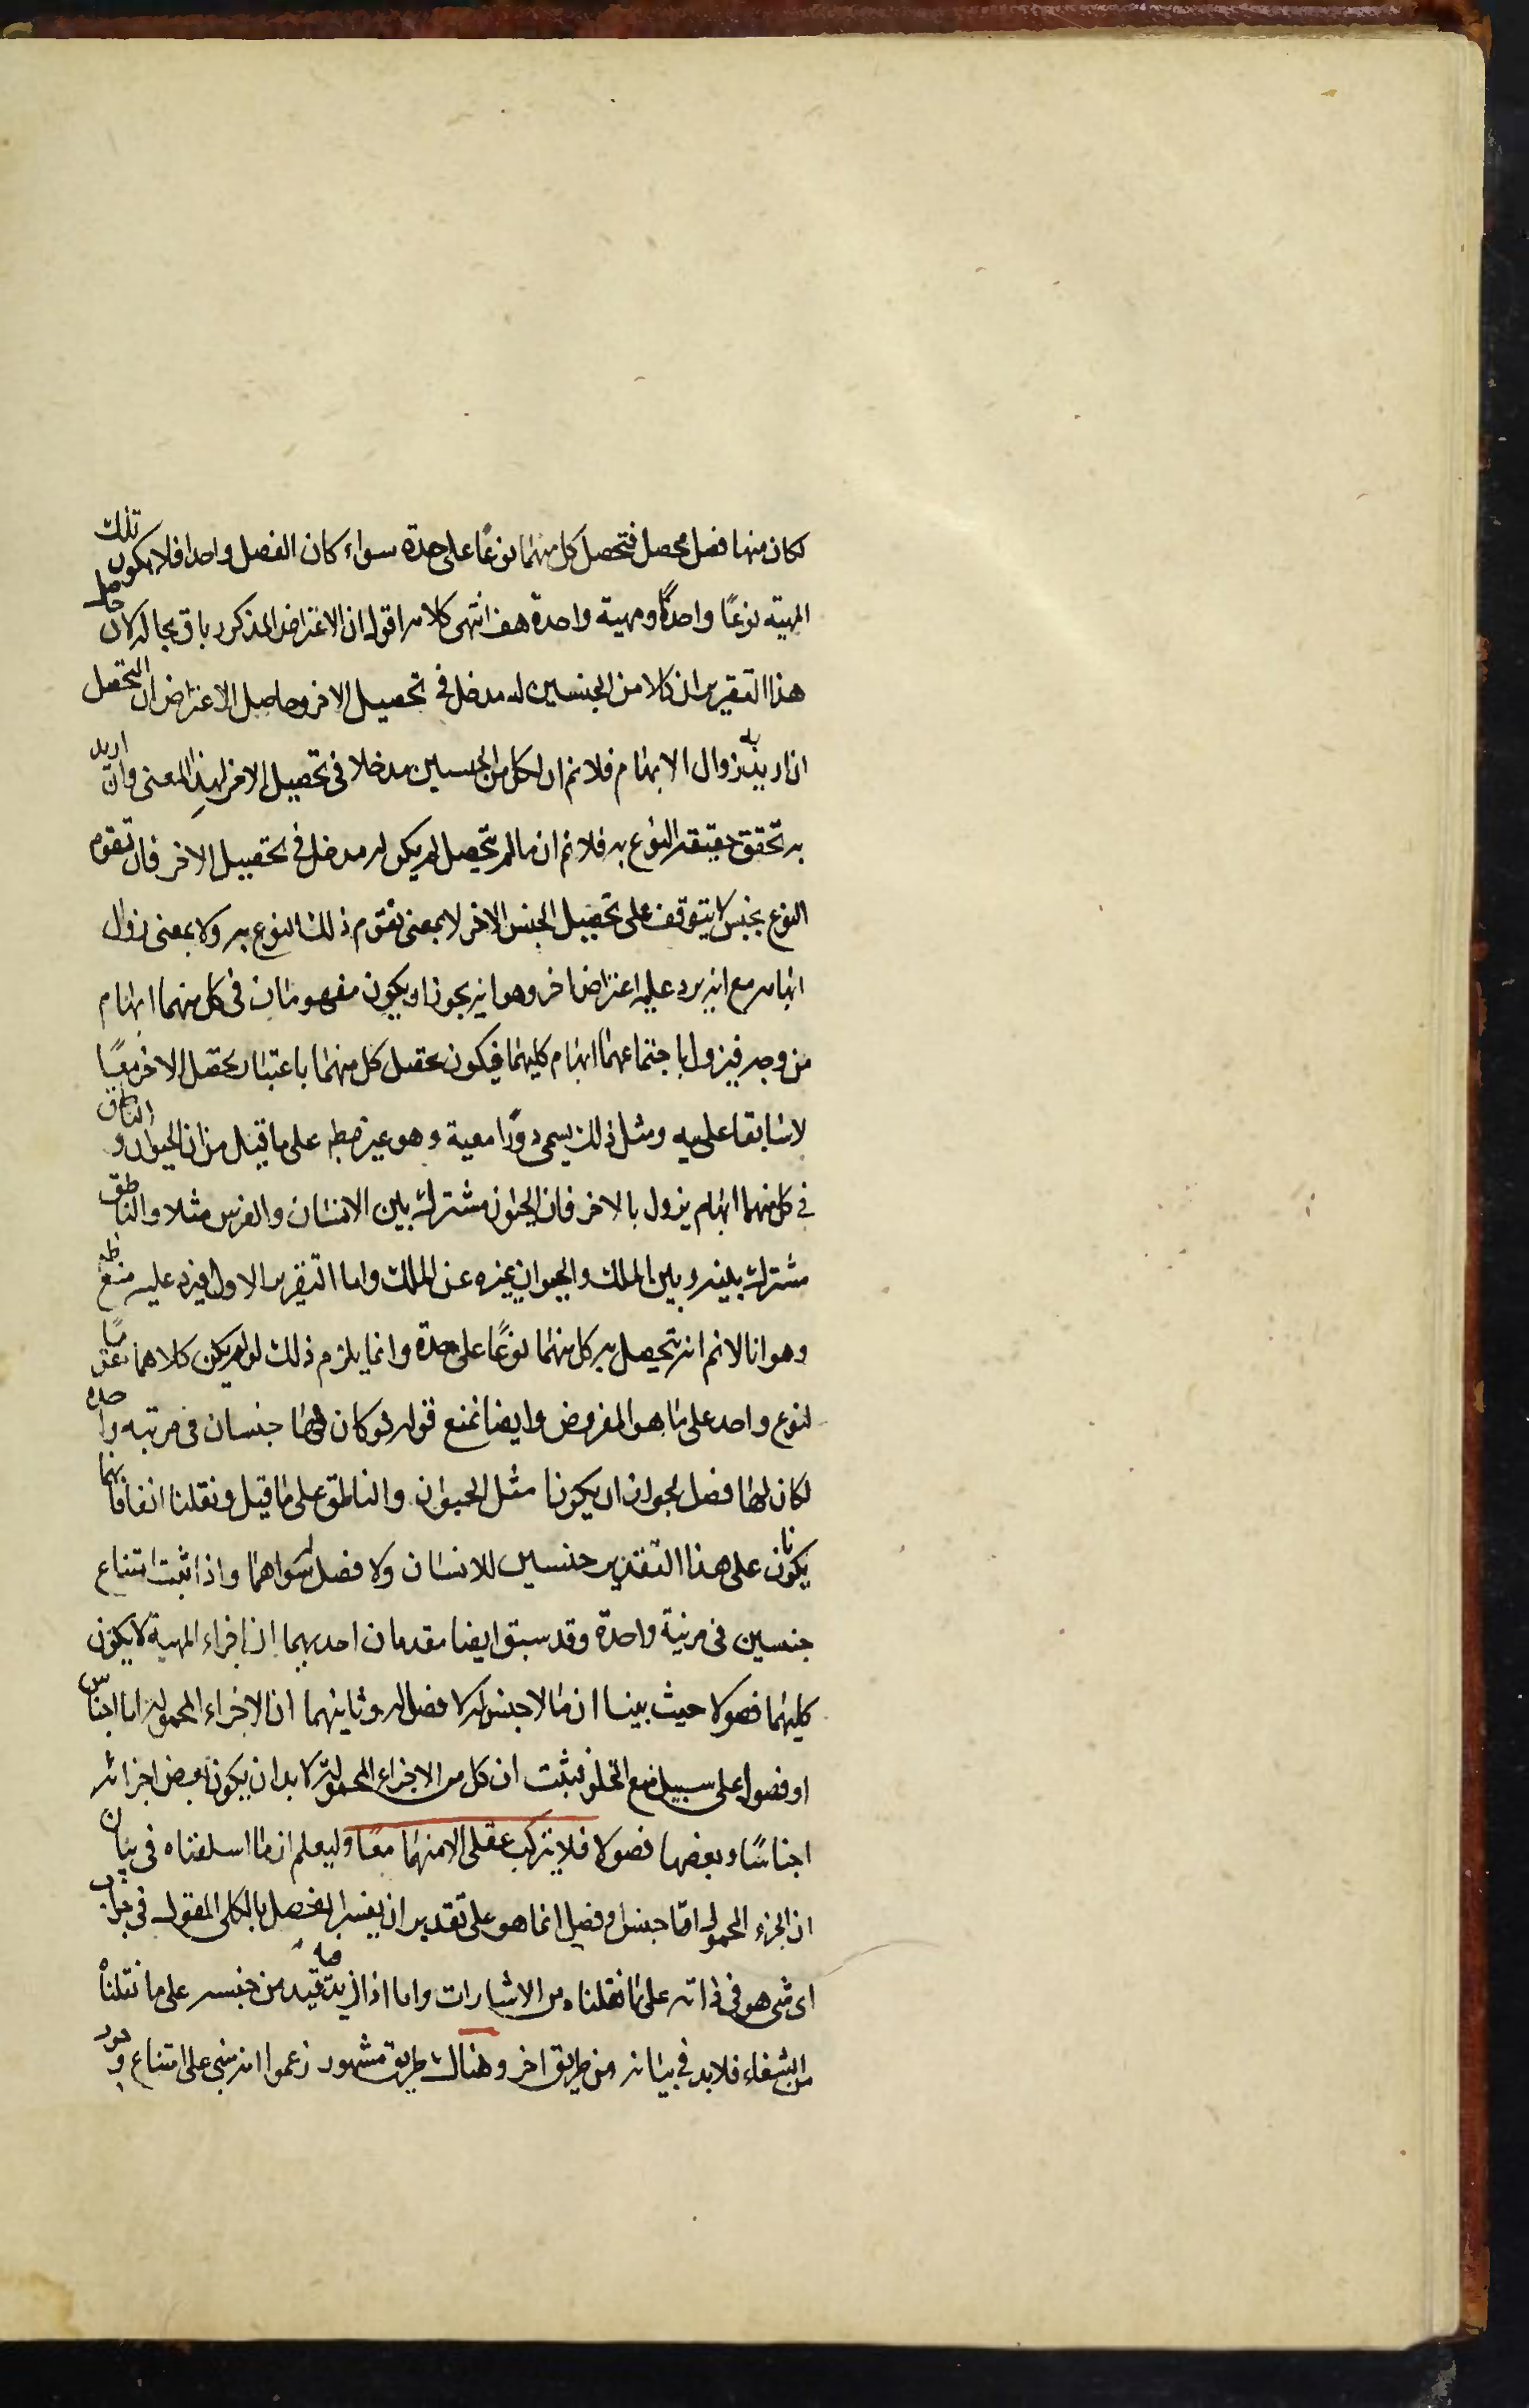 لكان منها فصل محصل فتحصل كل منهما نوعًا على حدة سواء كان الفصل واحدا فلا يكون تلك
المهية نوعًا واحدًا ومهية واحدة هف انتهى كلامه اقول ان الاعتراض المذكور باق بحاله لان حاصل
هذا التقرير ان كلا من الجنسين له مدخل فى تحصيل الاخر وحاصل الاعتراض ان التحصل
ان اريد به زوال الابهام فلانم ان لكل من الجنسين مدخلا فى تحصيل الاخر لهذا المعنى وان اريد
به تحقق حقيقة النوع به فلانم ان مالم يتحصل لم يكن له مدخل فى تحصيل الاخر فان تقوم
النوع بجنس لا يتوقف على تحصيل الجنس الاخر لا بمعنى تقوم ذلك النوع به ولا بمعنى زوال
ابهامه مع انه يرد عليه اعتراض اخر وهو انه يجوز ان يكون مفهومان فى كل منهما ابهام
من وجه فيزول باجتماعهما ابهام كليهما فيكون تحصل كل منهما باعتبار تحصل الاخر معًا
لا سابقا عليه ومثل ذلك يسمى دورًا معية وهو غير باطل على ما قيل من ان الحيوان والناطق
فى كل منهما ابهام يزول بالاخر فان الحيوان مشترك بين الانسان والفرس مثلا والناطق
مشترك بينه وبين الملك والحيوان يميزه عن الملك واما التقرير الاول فيرد عليه منع
وهو انا لانم انه يتحصل به كل منهما نوعًا على حدة وانما يلزم ذلك لو لم يكن كلاهما مقومًا
لنوع واحد على ما هو المفروض وايضا نمنع قوله لو كان لها جنسان فى مرتبه واحده
لكان لها فصل لجواز ان يكونا مثل الحيوان والناطق على ما قيل ونقلنا انفا فانهما
يكونان على هذا التقدير جنسين للانسان ولا فصل له سواهما واذا ثبت امتناع
جنسين فى مرتبة واحدة وقد سبق ايضا مقدمان احديهما ان اجزاء المهية لا يكون
كليهما فصولا حيث بينا ان ما لا جنس له لا فصل له وثانيهما ان الاجزاء المحمولة اما اجناس
او فصول على سبيل منع الخلو فيثبت ان كل من الاجزاء المحمولة لا بد ان يكون بعض اجزائه
اجناسًا وبعضها فصولا فلا يتركب عقلى الا منهما معًا وليعلم ان ما اسلفناه فى بيان
ان الجزء المحمول امّا جنس او فصل انما هو على تقدير ان يفسر الفصل بالكلى المقول فى جواب
اى شى هو فى ذاته على ما نقلناه من الاشارات واما اذا زيد فيه قيد من جنسه على ما نقلناه
من الشفاء فلا بد فى بيانه من طريق اخر وهناك طريق مشهور زعموا انه مبنى على امتناع وجود